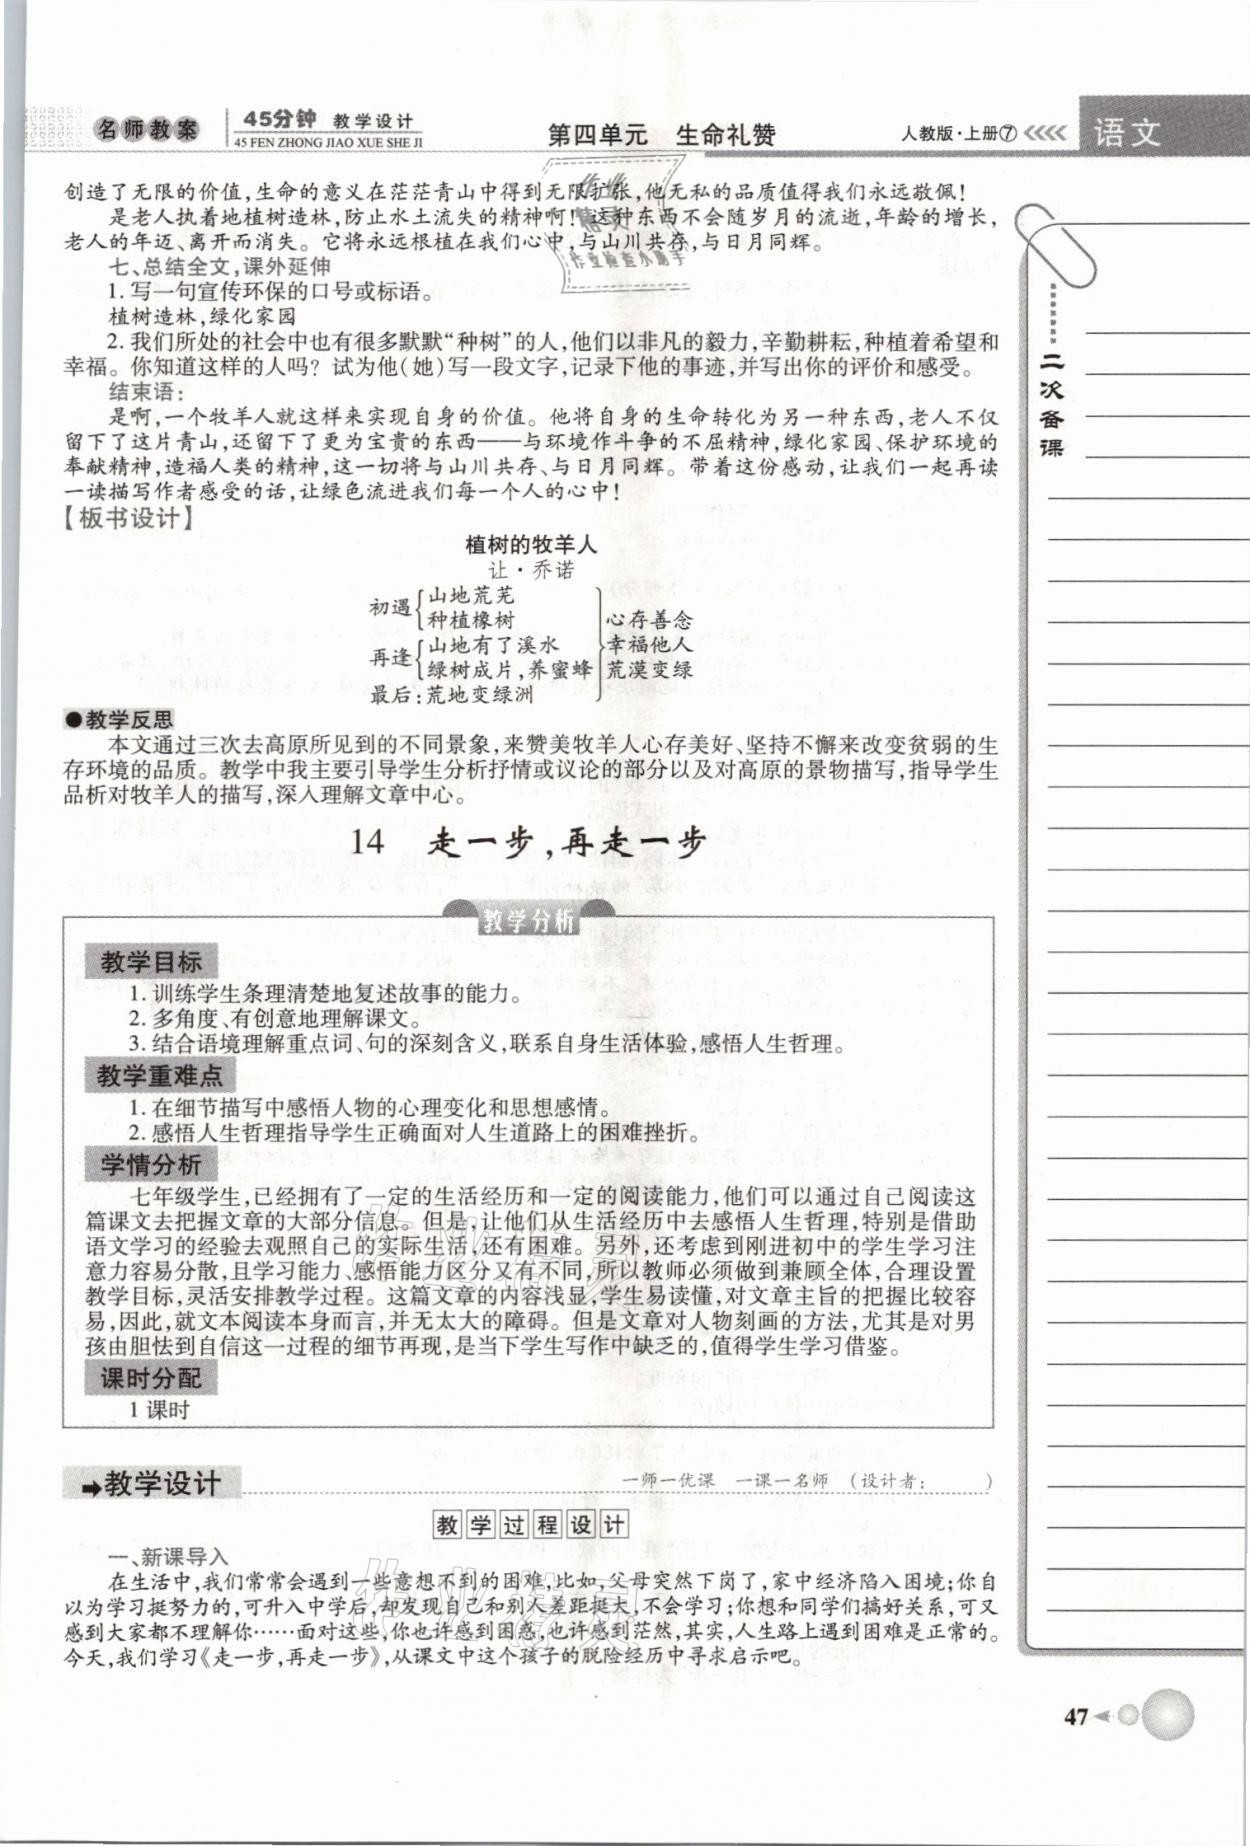 名师教案
45分钟 教学设计
45 FEN ZHONG JIAO XUE SHE JI
第四单元 生命礼赞
人教版·上册⑦
语文
创造了无限的价值,生命的意义在茫茫青山中得到无限扩张,他无私的品质值得我们永远敬佩!
是老人执着地植树造林,防止水土流失的精神啊!这种东西不会随岁月的流逝,年龄的增长,
老人的年迈、离开而消失。它将永远根植在我们心中,与山川共存,与日月同辉。
七、总结全文,课外延伸
1.写一句宣传环保的口号或标语。
植树造林,绿化家园
2.我们所处的社会中也有很多默默“种树”的人,他们以非凡的毅力,辛勤耕耘,种植着希望和
幸福。你知道这样的人吗?试为他(她)写一段文字,记录下他的事迹,并写出你的评价和感受。
结束语:
是啊,一个牧羊人就这样来实现自身的价值。他将自身的生命转化为另一种东西,老人不仅
留下了这片青山,还留下了更为宝贵的东西——与环境作斗争的不屈精神,绿化家园、保护环境的
奉献精神,造福人类的精神,这一切将与山川共存、与日月同辉。带着这份感动,让我们一起再读
一读描写作者感受的话,让绿色流进我们每一个人的心中!
【板书设计】
植树的牧羊人
让·乔诺
初遇 山地荒芜
种植橡树
再逢 山地有了溪水
绿树成片,养蜜蜂
最后:荒地变绿洲
心存善念
幸福他人
荒漠变绿
●教学反思
本文通过三次去高原所见到的不同景象,来赞美牧羊人心存美好、坚持不懈来改变贫弱的生
存环境的品质。教学中我主要引导学生分析抒情或议论的部分以及对高原的景物描写,指导学生
品析对牧羊人的描写,深入理解文章中心。
14 走一步,再走一步
教学分析
教学目标
1.训练学生条理清楚地复述故事的能力。
2.多角度、有创意地理解课文。
3.结合语境理解重点词、句的深刻含义,联系自身生活体验,感悟人生哲理。
教学重难点
1.在细节描写中感悟人物的心理变化和思想感情。
2.感悟人生哲理指导学生正确面对人生道路上的困难挫折。
学情分析
七年级学生,已经拥有了一定的生活经历和一定的阅读能力,他们可以通过自己阅读这
篇课文去把握文章的大部分信息。但是,让他们从生活经历中去感悟人生哲理,特别是借助
语文学习的经验去观照自己的实际生活,还有困难。另外,还考虑到刚进初中的学生学习注
意力容易分散,且学习能力、感悟能力区分又有不同,所以教师必须做到兼顾全体,合理设置
教学目标,灵活安排教学过程。这篇文章的内容浅显,学生易读懂,对文章主旨的把握比较容
易,因此,就文本阅读本身而言,并无太大的障碍。但是文章对人物刻画的方法,尤其是对男
孩由胆怯到自信这一过程的细节再现,是当下学生写作中缺乏的,值得学生学习借鉴。
课时分配
1课时
➡教学设计
一师一优课 一课一名师 (设计者: )
教学过程设计
一、新课导入
在生活中,我们常常会遇到一些意想不到的困难,比如,父母突然下岗了,家中经济陷入困境;你自
以为学习挺努力的,可升入中学后,却发现自己和别人差距挺大,不会学习;你想和同学们搞好关系,可又
感到大家都不理解你……面对这些,你也许感到困惑,也许感到茫然,其实,人生路上遇到困难是正常的。
今天,我们学习《走一步,再走一步》,从课文中这个孩子的脱险经历中寻求启示吧。
二次备课
47
作业
精灵
作业检查小助手
作业精灵
作业精灵